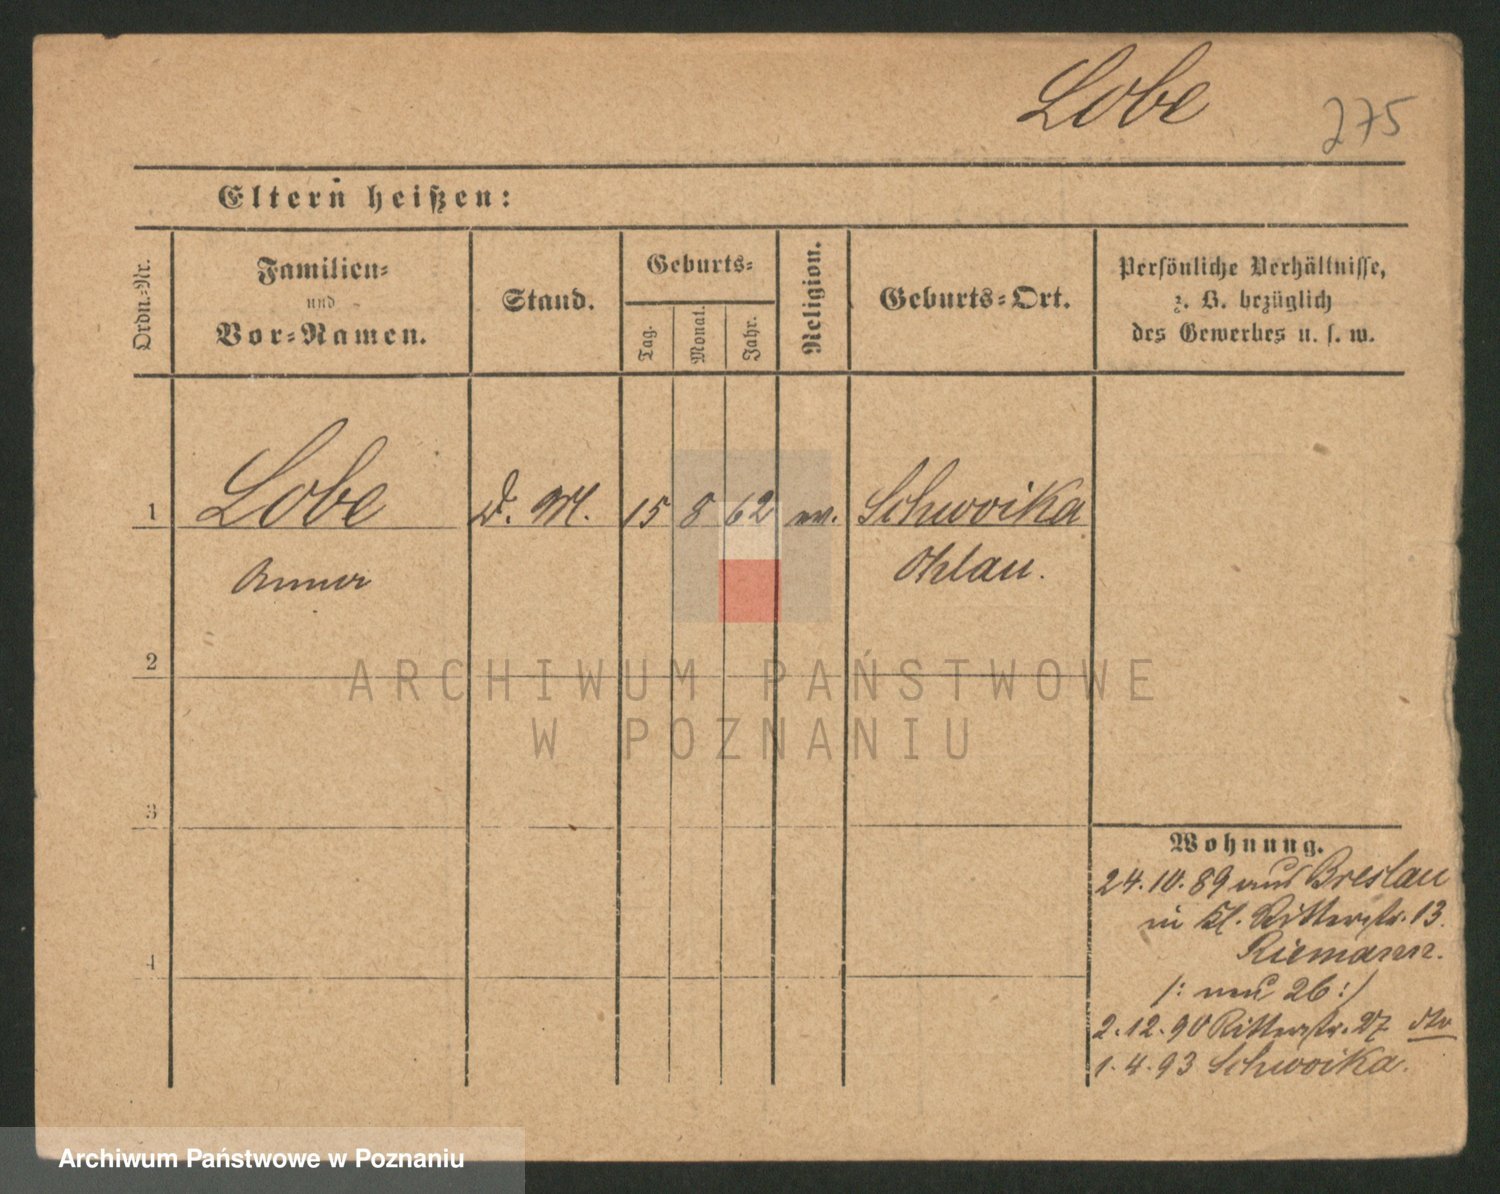 Lobe 275
Eltern heißen:
Ordn.-Nr.
Familien-
und
Vor-Namen.
Stand.
Geburts-
Tag.
Monat.
Jahr.
Religion.
Geburts-Ort.
Persönliche Verhältnisse,
z. B. bezüglich
des Gewerbes u. s. w.
1 Lobe D. M. 15 8 62 ev. Schwoika
Anna Ohlau.
2
ARCHIWUM PAŃSTWOWE
W POZNANIU
3
4
Wohnung.
24.10.89 aus Breslau
in Kl. Ritterstr. 13.
Riemann.
/: neu 26 :/
2.12.90 Ritterstr. 27 dto
1.4.93 Schwoika.
Archiwum Państwowe w Poznaniu